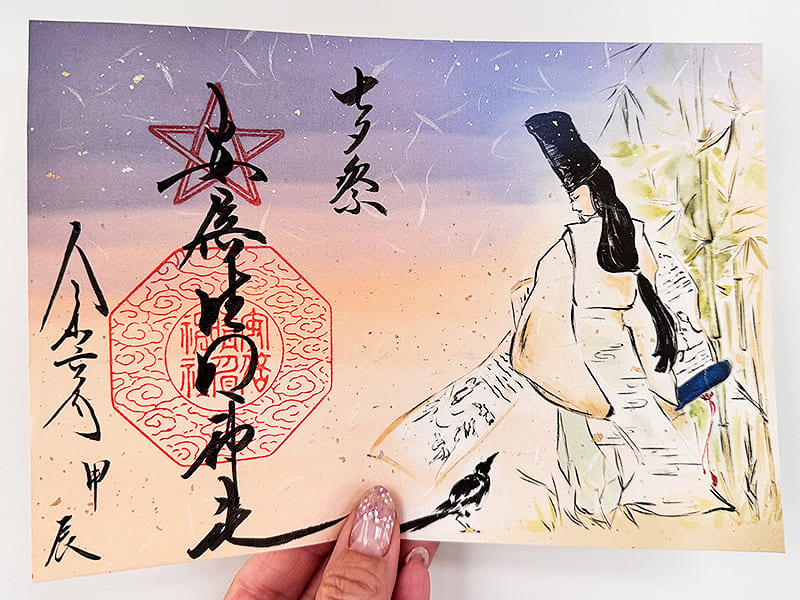 七夕祭
安倍晴明神社
安倍
晴明
神社
令和六年 甲辰